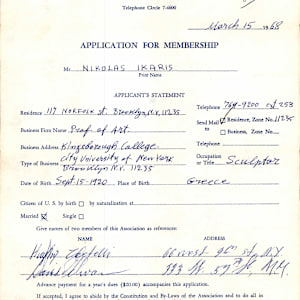 Telephone Circle 7-6600
March 15 1968
APPLICATION FOR MEMBERSHIP
Mr. NIKOLAS IKARIS
Print Name
APPLICANT'S STATEMENT
Residence 117 NORFOLK St. Brooklyn N.Y. 11235 Telephone 769-9200 ext 258
Business Firm Name Prof of Art. Send Mail to Residence, Zone No. 11235
Business Address Kingsborough College Business, Zone No.
City University of New York
Type of Business Brooklyn N.Y. 11235 Occupation or Title Sculptor
Date of Birth Sept. 15-1920 Place of Birth Greece
Citizen of U.S. by birth by naturalization at
Married Single
Give names of two members of this Association as references:
NAME ADDRESS
st N.Y.
57th N.Y.
Advance payment for a year's dues ($20.00) accompanies this application.
If accepted, I agree to abide by the Constitution and By-Laws of the Association and its